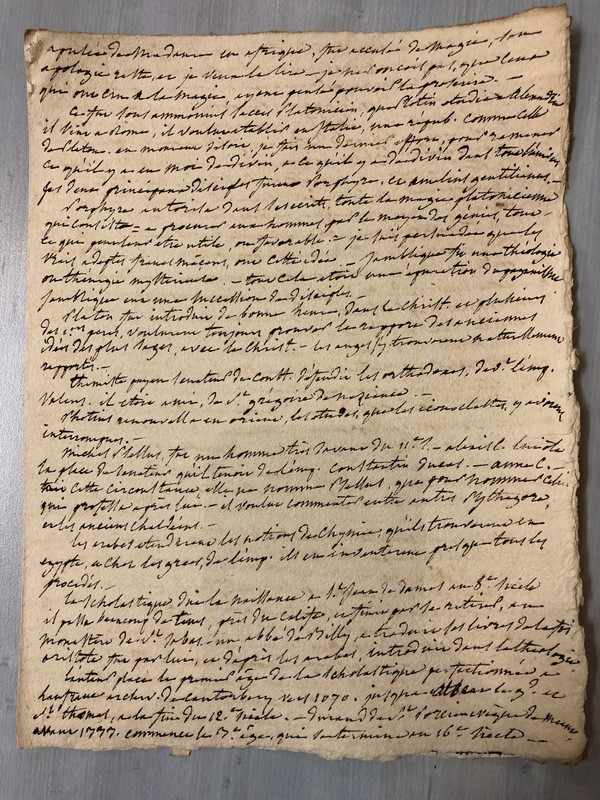 apulée de Madaure en afrique, fut accusé de magie, son
apologie reste, et je veux la lire - je ne conçois pas, que ceux
qui ont cru à la magie, ayent pensé pouvoir la professer. -
Ce fut sous ammonius saccas Platonicien, que Plotin étudia à Alexandrie
il vint à Rome, il voulut etablir en Italie, une républ. comme celle
de Platon. en mourant disoit, je fais mon dernier effort, pour ramener
ce qu'il y a en moi de divin, à ce qu'il y a de divin dans tout l'univers
ses deux principaux disciples furent Porphyre, et amelius gentilianus. -
Porphyre autorise dans ses ecrits, toute la magie platonicienne
qui consiste = à procurer aux hommes par le moyen des genies, tout
ce qui peut leur etre utile, ou favorable = je suis persuadé que les
vrais adeptes francs maçons, ont cette idée. - Jamblique fit une théologie
ou théurgie mysterieuse - tout cela etoit une épuration du paganisme
Jamblique eut une succession de disciples.
Platon fut introduit de bonne heure, dans le Christ. et plusieurs
des 1ers peres, voulurent toujours prouver le rapport des anciennes
idées des plus sages, avec le Christ. - les anges s'y trouvoient naturellement
rapportés. -
themiste payen senateur de Const. defendit les orthodoxes, de v.t l'emp.
Valens. il etoit ami, de St. grégoire de nazianze. -
Photius renouvella en orient, les etudes, que les iconoclastes, y avoient
interrompues. -
Michel Psellus, fut un homme très savant du 11e s. - alexis C. lui ôta
la place de senateur qu'il tenoit de l'emp. Constantin ducas. - anne C.
tait cette circonstance, elle ne nomme Psellus, que pour nommer celui
qui professa après lui - il voulut commenter entre autres Pythagore,
et les anciens chaldéens. -
les arabes etendirent les notions de chymie, qu'ils trouverent en
egypte, et chez les grecs de l'emp. ils en inventerent presque tous les
procédés. -
la scholastique dut la naissance à St. Jean de damas au 8e siècle
il passa beaucoup de tems, près du calife, et finit par se retirer, au
monastère de St. Sabas. un abbé de Billy, a traduit ses livres de la foi
aristote fut par lui, et d'après les arabes, introduit dans la théologie
l'on place le premier âge de la scholastique perfectionnée à
Lanfranc archev. de Cantorbery vers 1070. jusqu'à Albert le gd. et
St. thomas, à la fin du 12e siècle. - durand de St. Porcien evêque de meaux
commence le 3e âge, qui se termine au 16e siecle -